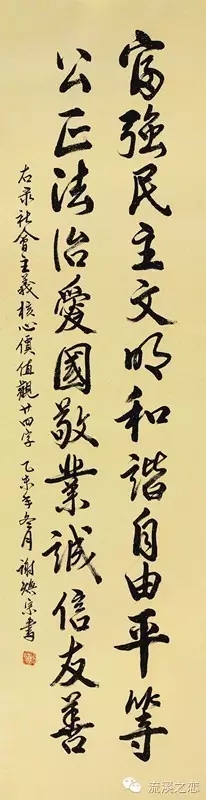 富強民主文明和諧自由平等
公正法治愛國敬業誠信友善
右录社會主義核心價值觀廿四字 乙未年冬月 謝煥宗書
流溪之恋